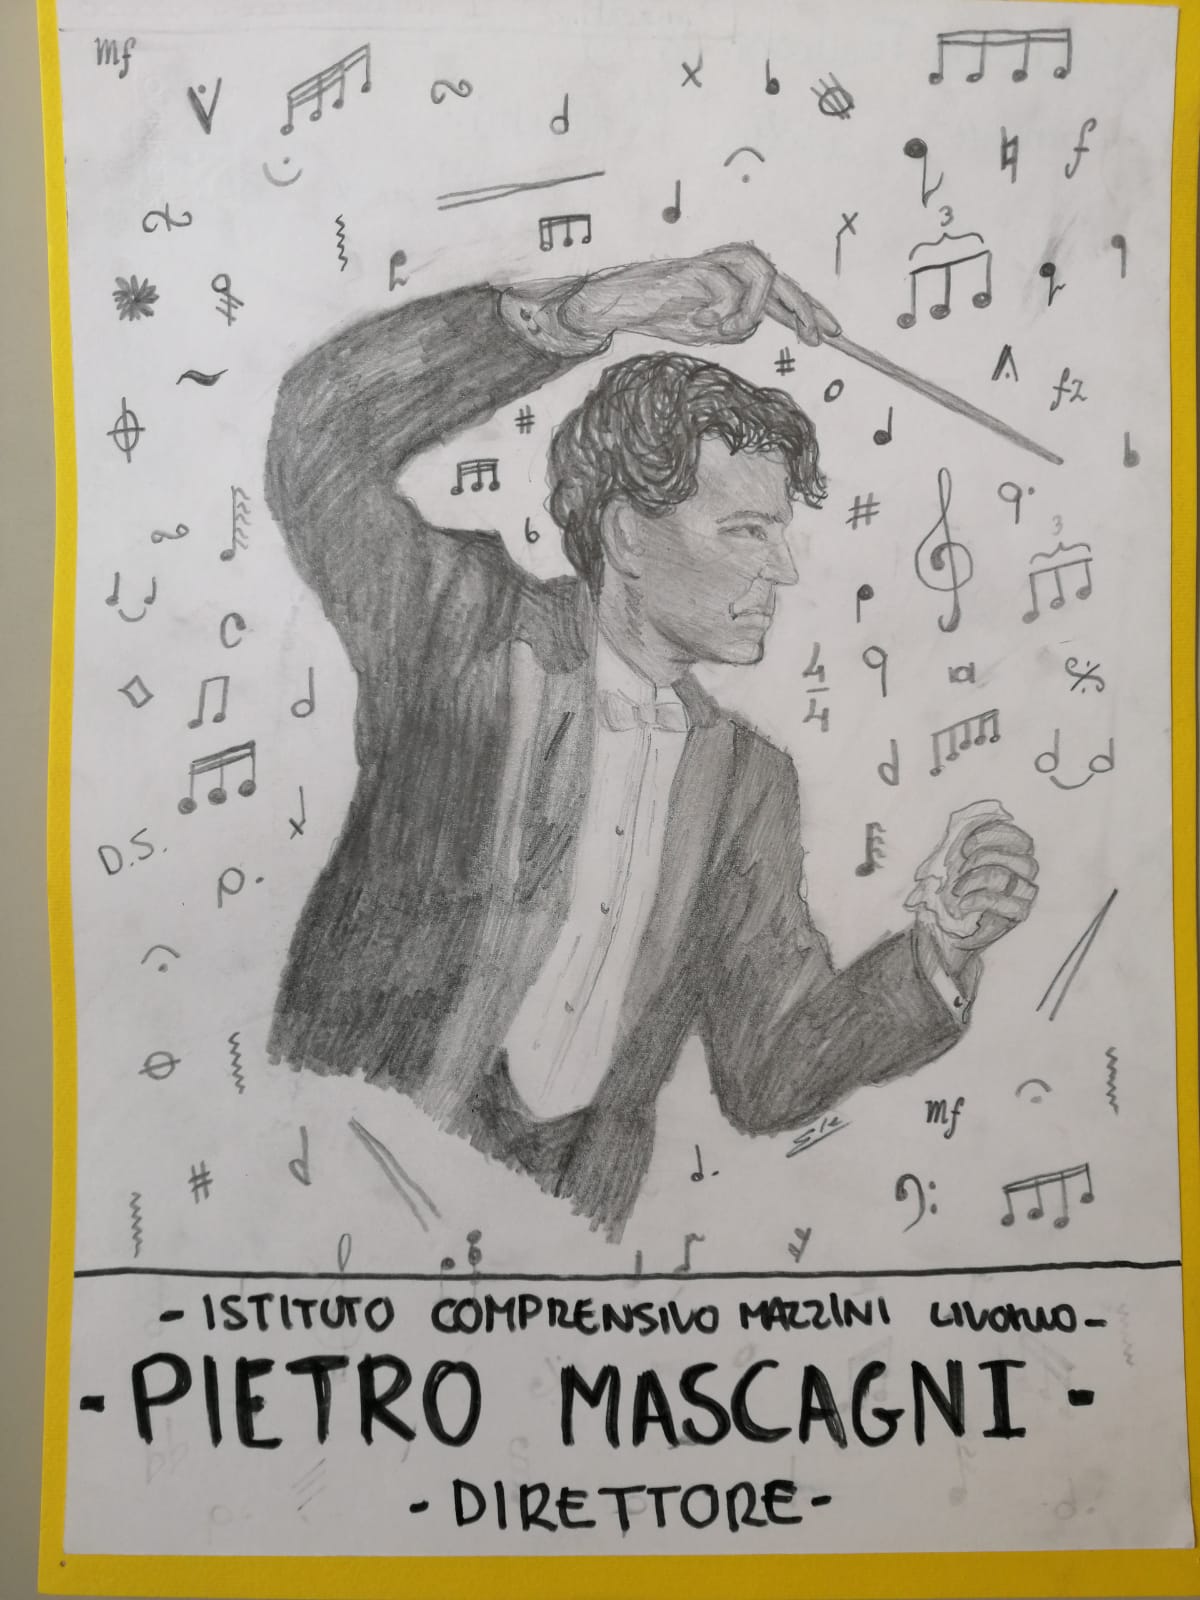 mf
f
3
fz
3
4
4
D.S.
mf
- ISTITUTO COMPRENSIVO MAZZINI LIVORNO -
- PIETRO MASCAGNI -
- DIRETTORE -